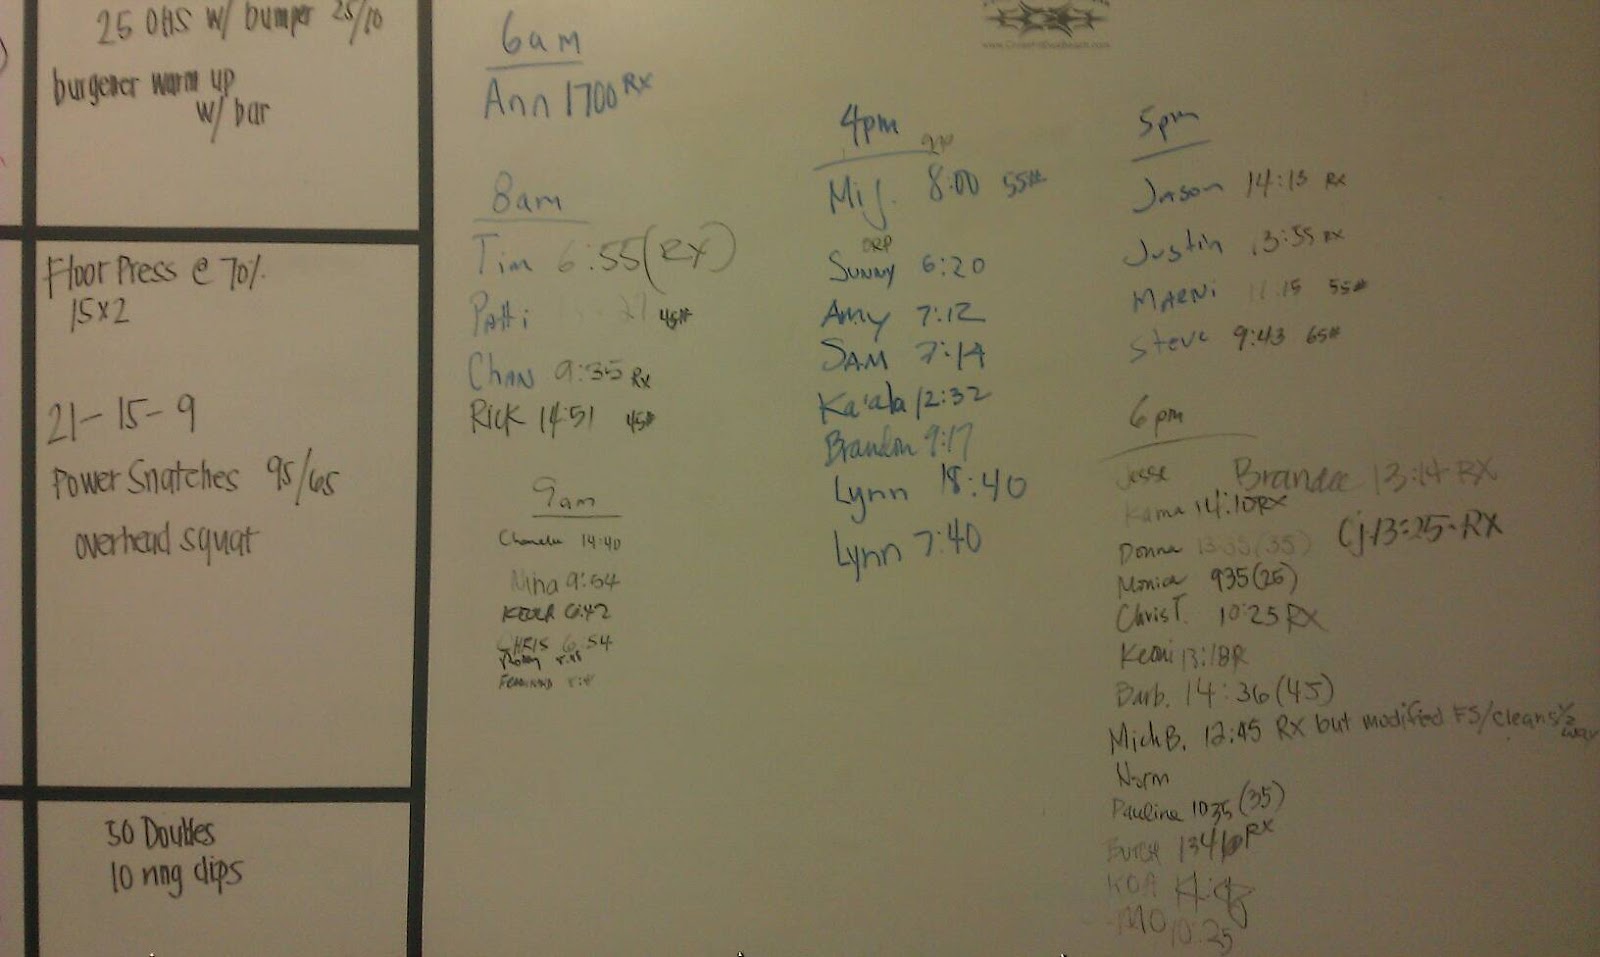 25 OHS w/ bumper 25/10
burgener warm up
w/ bar
Floor Press @ 70%
15x2
21-15-9
Power Snatches 95/65
overhead squat
50 Doubles
10 ring dips
6am
Ann 1700 RX
8am
Tim 6:55 (RX)
Patti 45#
Chan 9:35 Rx
Rick 14:51 45#
9am
14:40
Nina 9:54
6:42
CHRIS 6:54
4pm
Mij. 8:00 55#
Sunny 6:20
Amy 7:12
SAM 7:14
Ka'ala 12:32
Brandon 9:17
Lynn 18:40
Lynn 7:40
5pm
Jason 14:13 RX
Justin 13:55 RX
MARNi 11:15 55#
Steve 9:43 65#
6pm
Jesse Brandee 13:14 RX
Kama 14:10 RX
Donna 13:35 (35) Cj. 13:25-RX
Monica 935 (25)
Chris T. 10:25 RX
Keoni 13:18 R
Barb. 14:36 (45)
Mich B. 12:45 RX but modified FS/cleans 1/2 way
Norm
Pauline 1035 (35)
RX
KOA
MO 10:25